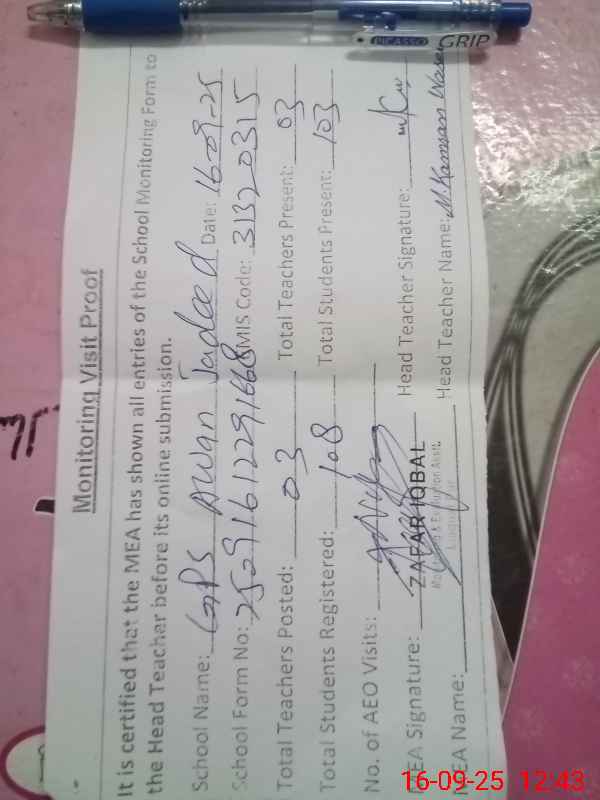 PICASSO GRIP
Monitoring Visit Proof
It is certified that the MEA has shown all entries of the School Monitoring Form to
the Head Teacher before its online submission.
School Name: GPS Awan Jadeed Date: 16-09-25
School Form No: EMIS Code: 31320315
Total Teachers Posted: 03 Total Teachers Present: 03
Total Students Registered: 108 Total Students Present: 103
No. of AEO Visits:
MEA Signature: Head Teacher Signature:
ZAFAR IQBAL
Monitoring & Evaluation Asstt.
MEA Name: Head Teacher Name: M. Kamran
16-09-25 12:43